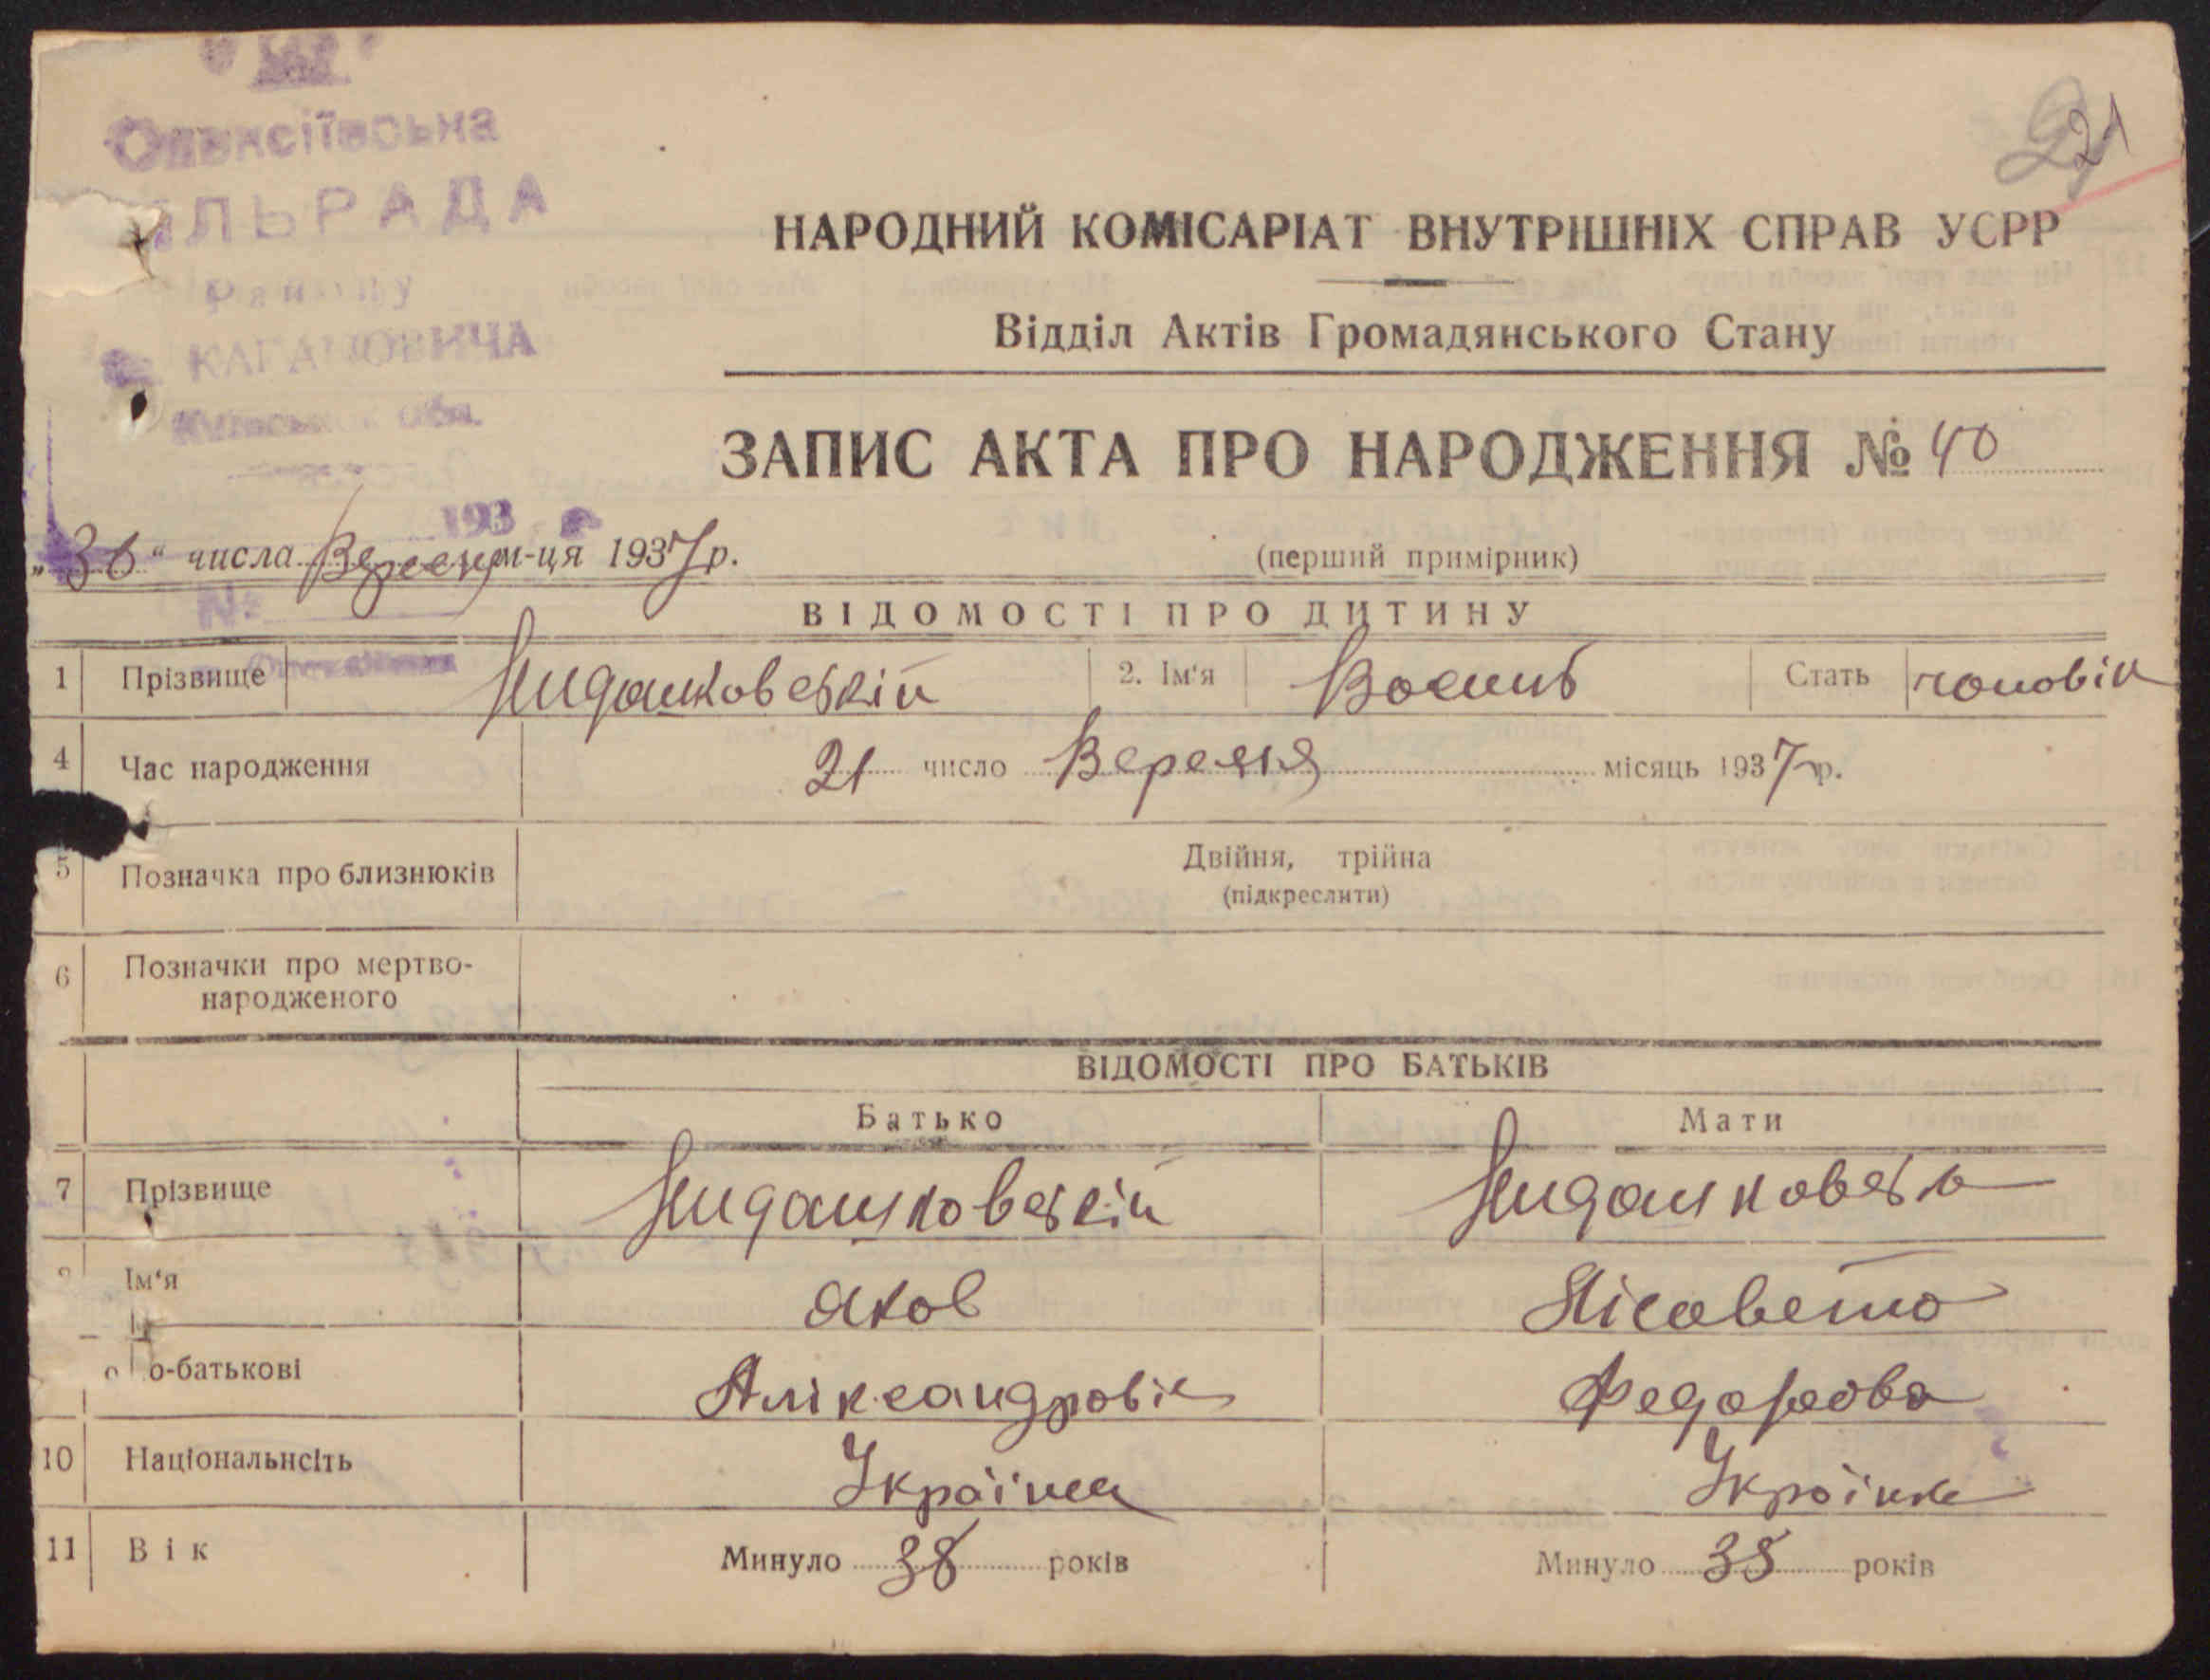 Олексіївська
ІЛЬРАДА
Району
КАГАНОВИЧА
Київської обл.
21
НАРОДНИЙ КОМІСАРІАТ ВНУТРІШНІХ СПРАВ УСРР
Відділ Актів Громадянського Стану
ЗАПИС АКТА ПРО НАРОДЖЕННЯ № 40
193 р.
„30“ числа Вересня м-ця 1937 р.
(перший примірник)
№
ВІДОМОСТІ ПРО ДИТИНУ
1 Прізвище 2. Ім'я Стать чоловік
4 Час народження 21 число Вересня місяць 1937 р.
5 Позначка про близнюків Двійня, трійна
(підкреслити)
6 Позначки про мертво-
народженого
ВІДОМОСТІ ПРО БАТЬКІВ
Батько Мати
7 Прізвище
Ім'я Яков Лісавета
о-батькові Аліксандровіч Федоровна
10 Національнсіть Українец Українка
11 Вік Минуло 38 років Минуло 38 років